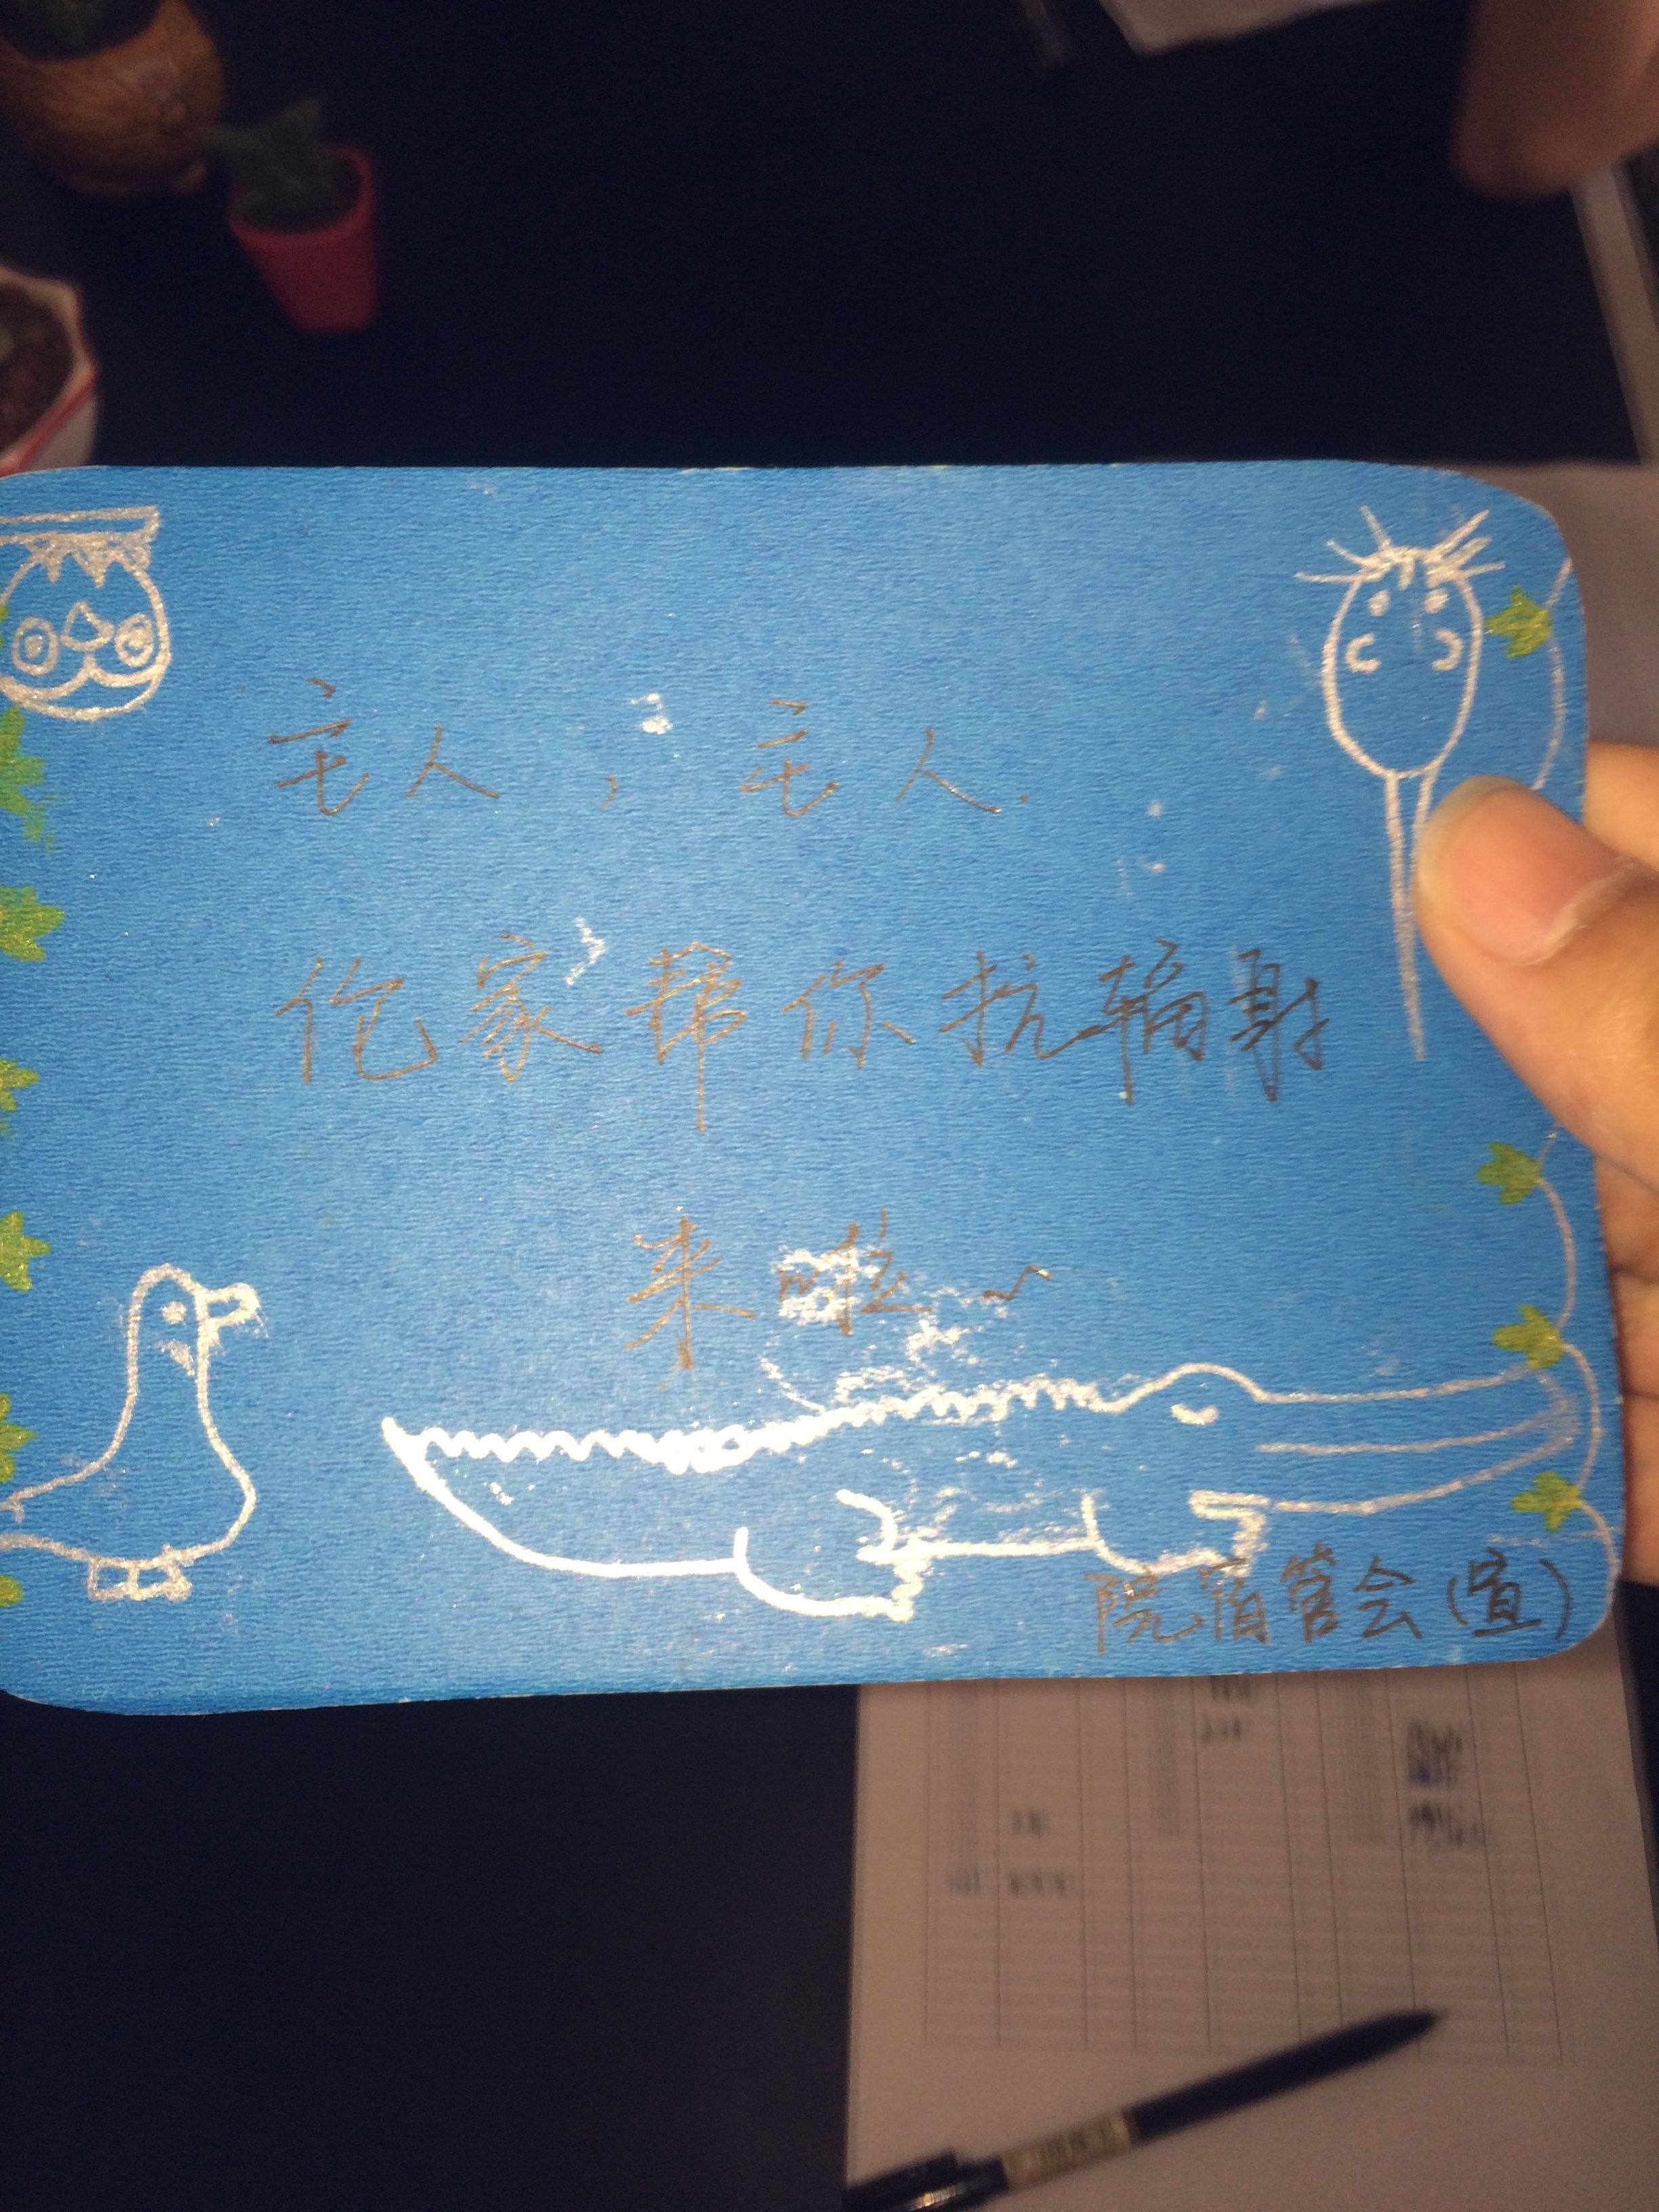 主人，主人.
伦家帮你抗辐射
来啦~
院宿管会(宣)